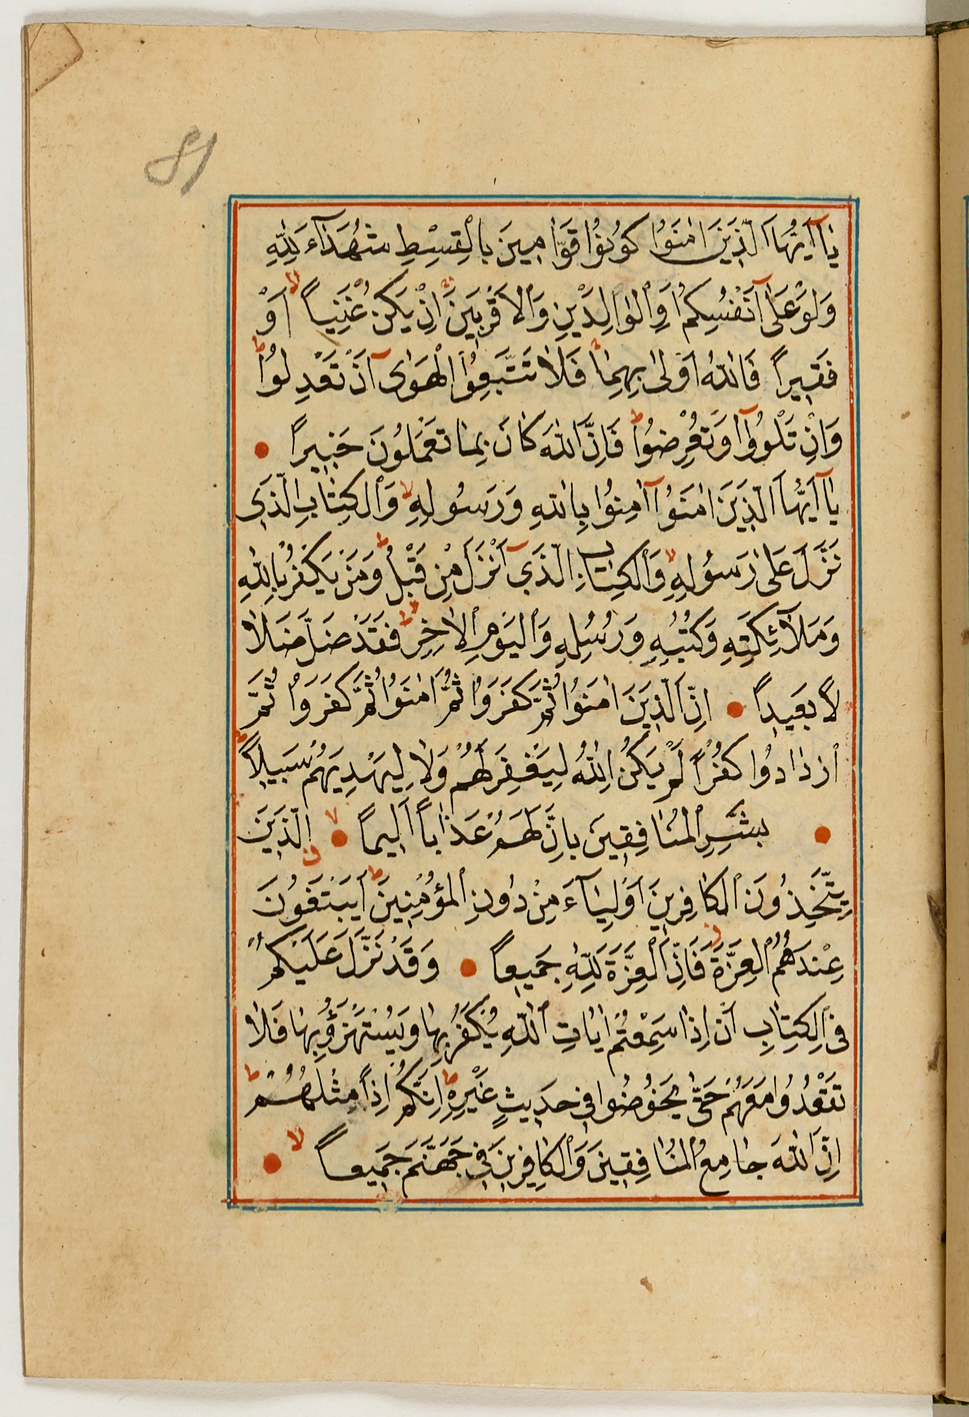 81
يَا اَيُّهَا الَّذِينَ اٰمَنُوا كُونُوا قَوَّامِينَ بِالْقِسْطِ شُهَدَاءَ لِلّٰهِ
وَلَوْ عَلٰى اَنْفُسِكُمْ اَوِ الْوَالِدَيْنِ وَالْاَقْرَبِينَ اِنْ يَكُنْ غَنِيًّا اَوْ
فَقِيرًا فَاللّٰهُ اَوْلٰى بِهِمَا فَلَا تَتَّبِعُوا الْهَوٰى اَنْ تَعْدِلُوا
وَاِنْ تَلْوُوا اَوْ تُعْرِضُوا فَاِنَّ اللّٰهَ كَانَ بِمَا تَعْمَلُونَ خَبِيرًا
يَا اَيُّهَا الَّذِينَ اٰمَنُوا اٰمِنُوا بِاللّٰهِ وَرَسُولِهِ وَالْكِتَابِ الَّذِى
نَزَّلَ عَلٰى رَسُولِهِ وَالْكِتَابِ الَّذِى اَنْزَلَ مِنْ قَبْلُ وَمَنْ يَكْفُرْ بِاللّٰهِ
وَمَلَآئِكَتِهِ وَكُتُبِهِ وَرُسُلِهِ وَالْيَوْمِ الْاٰخِرِ فَقَدْ ضَلَّ ضَلَالًا
لًا بَعِيدًا اِنَّ الَّذِينَ اٰمَنُوا ثُمَّ كَفَرُوا ثُمَّ اٰمَنُوا ثُمَّ كَفَرُوا ثُمَّ
ازْدَادُوا كُفْرًا لَمْ يَكُنِ اللّٰهُ لِيَغْفِرَ لَهُمْ وَلَا لِيَهْدِيَهُمْ سَبِيلًا
بَشِّرِ الْمُنَافِقِينَ بِاَنَّ لَهُمْ عَذَابًا اَلِيمًا الَّذِينَ
يَتَّخِذُونَ الْكَافِرِينَ اَوْلِيَاءَ مِنْ دُونِ الْمُؤْمِنِينَ اَيَبْتَغُونَ
عِنْدَهُمُ الْعِزَّةَ فَاِنَّ الْعِزَّةَ لِلّٰهِ جَمِيعًا وَقَدْ نَزَّلَ عَلَيْكُمْ
فِى الْكِتَابِ اَنْ اِذَا سَمِعْتُمْ اٰيَاتِ اللّٰهِ يُكْفَرُ بِهَا وَيُسْتَهْزَؤُ بِهَا فَلَا
تَقْعُدُوا مَعَهُمْ حَتّٰى يَخُوضُوا فِى حَدِيثٍ غَيْرِهِ اِنَّكُمْ اِذًا مِثْلُهُمْ
اِنَّ اللّٰهَ جَامِعُ الْمُنَافِقِينَ وَالْكَافِرِينَ فِى جَهَنَّمَ جَمِيعًا